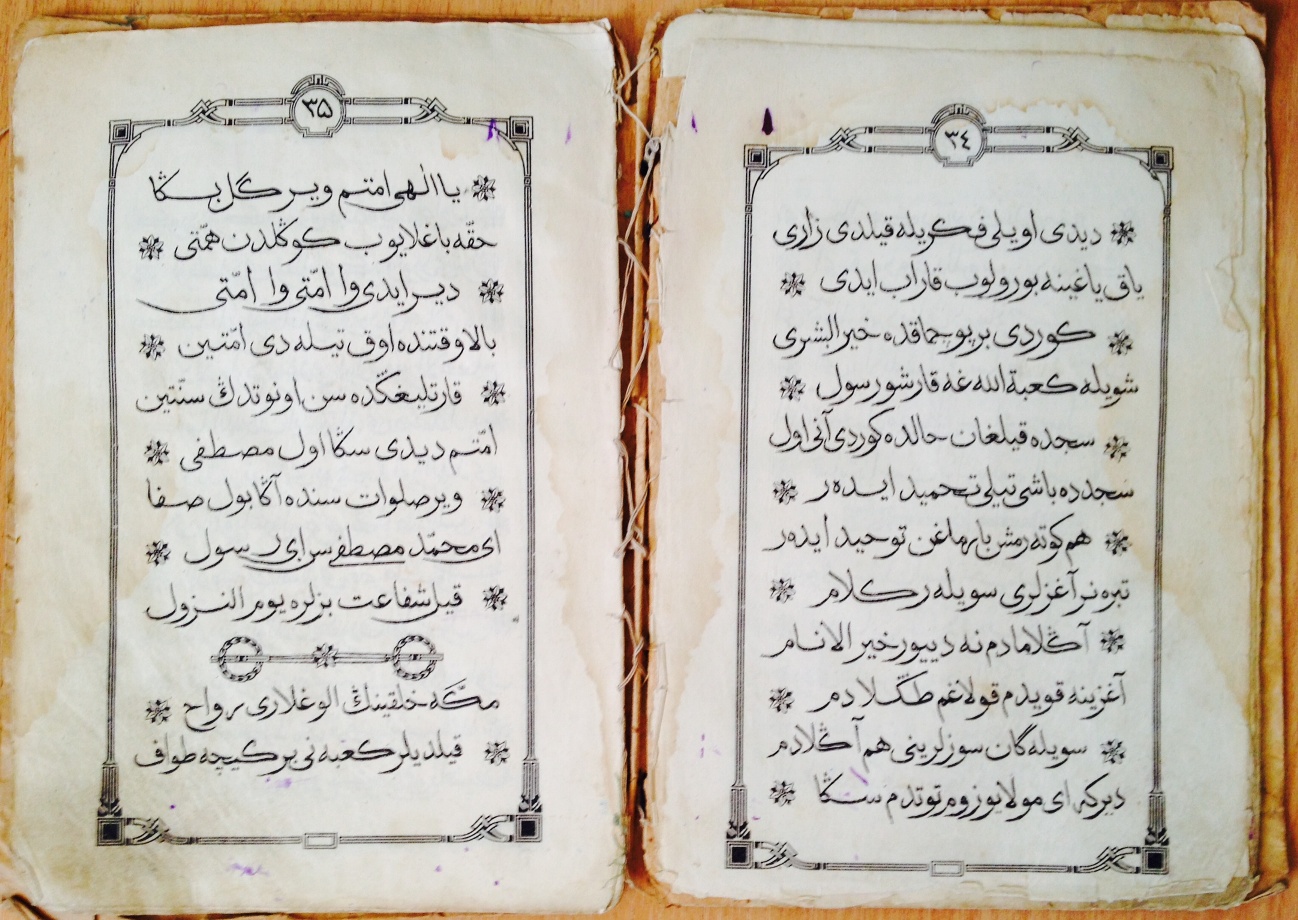 ٣٤
ديدى اويلى فكريله قيلدى زارى
ياق ياغينه بورولوب قاراب ايدى
كوردى بر بوجماقده خير البشرى
شويله كعبة الله غه قارشو رسول
سجده قيلغان حالده كوردى آنى اول
سجدده باشى تيلى تحميد ايدهر
هم كوتهرمش بارماغن توحيد ايدهر
تبره نر آغزلرى سويله ر كلام
آڭلامادم نه دييور خير الانام
آغزينه قويدم قولاغم طڭلادم
سويله گان سوزلرينى هم آڭلادم
دير كه اى مولا يوزوم توتدم سڭا
٣٥
يا الٰهى امّتم ويرگل بڭا
حقّه باغلايوب كوڭلدن همّتى
دير ايدى وا امّتى وا امّتى
بالا وقتنده اوق تيله دى امّتين
قارتليغڭده سن اونوتدڭ سنّتين
امّتم ديدى سڭا اول مصطفى
وير صلوات سنده آڭا بول صفا
اى محمّد مصطفى سن اى رسول
قيل شفاعت بزلره يوم النزول
مكّه خلقينڭ الوغلارى رواح
قيلديلر كعبه نى بر كيچه طواف